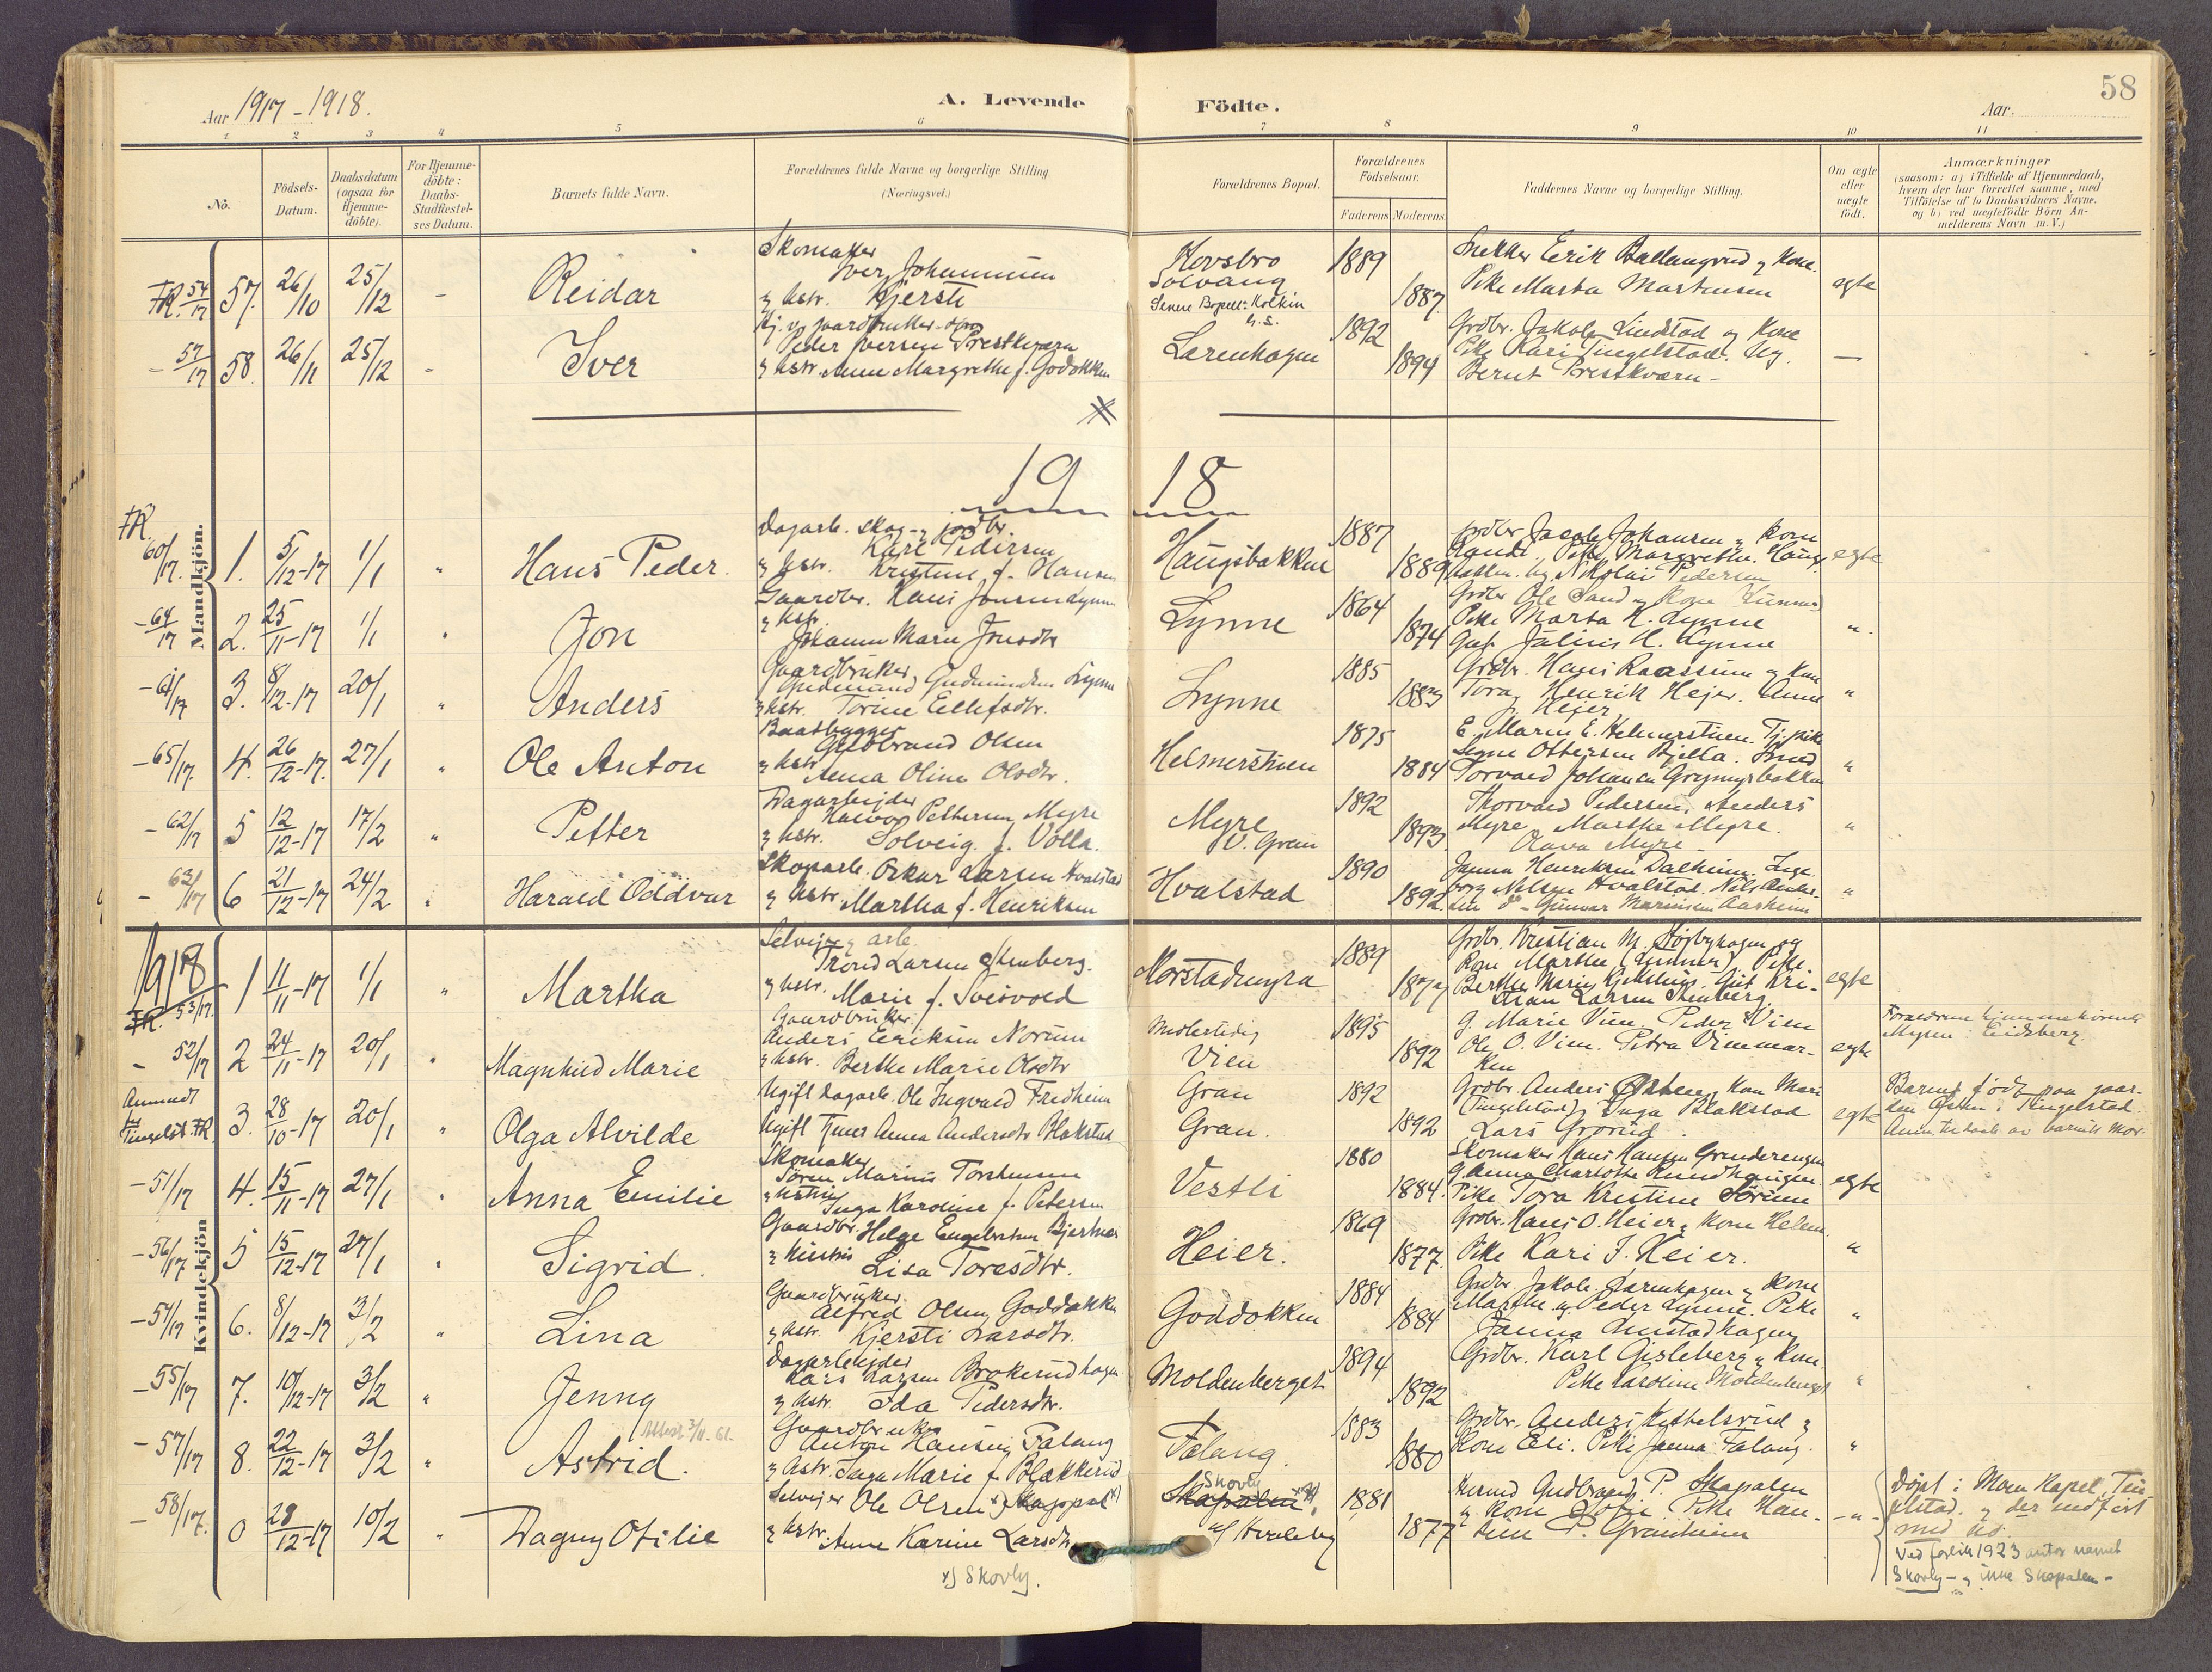 58
Aar 1917-1918.
A. Levende Födte.
Aar
1 2 3 4 5 6 7 8 9 10 11
No.
Födsels-Datum.
Daabsdatum (ogsaa for Hjemme-döbte).
For Hjemme-döbte: Daabs-Stadfestel-ses Datum.
Barnets fulde Navn.
Forældrenes fulde Navne og borgerlige Stilling. (Næringsvei.)
Forældrenes Bopæl.
Forældrenes Födselsaar.
Faderens Moderens
Faddernes Navne og borgerlige Stilling.
Om ægte eller uægte födt.
Anmærkninger
(saasom: a) i Tilfælde af Hjemmedaab,
hvem der har forrettet samme, med
Tilföielse af to Daabsvidners Navne.
og b) ved uægtefödte Börn An-
melderens Navn m. V.)
FR. 54/17 57. 26/10 25/12 - Reidar
Skomaker
Iver Johannesen
& hstr. Kjersti
Korsbro
Solvang
1889 1887
Snekker Erik Ballangrud & kone.
Pike Marta Martinsen
egte
- 57/17 58. 26/11 25/12 - Iver
Peder Iversen Prestkværn
& hstr. Anne Margrethe f. Godokken
Larenhagen
1892 1894
Grdbr. Jakob Lindstad og Kone
Pike Kari Tingelstad. Ug.
Bernt Prestkværn -
—
1918
Mandkjön.
FR. 60/17. 1. 5/12-17 1/1 " Hans Peder.
Dagarb. skog- & jordbr.
Karl Pedersen
& hstr. Kristine f. Hansen
Haugsbakken
1887 1889
Grdbr Jacob Johansen & kone
Randi. Pike Margrethe Haugs-
bakken. Ug. Nikolai Pedersen
egte
- 64/17 2. 25/11-17 1/1 " Jon
Gaardbr. Hans Jonsen Lynne
& hstr.
Johanne Marie Jonsdtr
Lynne
1864 1874
Grdbr Ole Sand & Kone Gunner
Pike Marta H. Lynne
Gut Julius H. Lynne
"
- 61/17 3. 8/12-17 20/1 " Anders
Gaardbruker
Gudmund Gudmundsen Lynne
& hstr. Torine Ellefsdtr.
Lynne
1885 1883
Grdbr. Hans Raassum & Kone
Tora, Henrik Hejer. Anne
Hejer
"
- 65/17 4. 26/12-17. 27/1 " Ole Anton
Baatbygger
Gulbrand Olsen
& hstr
Anna Oline Olsdtr.
Helmerstuen
1875 1884
E. Maren E. Helmerstuen. Tj.pike
Signe Ottersen Bjella. Smed
Torvald Johansen Grymyrbakken
"
- 62/17 5 12/12-17 17/2 " Petter
Dagarbeider
Halvor Pettersen Myre
& hstr. Solveig. f. Volla.
Myre
V. Gran
1892 1893
Thorvald Pedersen. Anders
Myre Marthe Myre.
Olava Myre
"
- 63/17 6 21/12-17 24/2 " Harald Oddvar
Skogarb. Oskar Larsen Hvalstad
& hstr. Martha f. Henriksen
Hvalstad
1890 1892.
Janna Henriksen Dalheim. Inge-
borg Nielsen Hvalstad. Nils Ander-
sen do - Gunvor Marinsen Aasheim
"
Kvindekjön
1918
FR. 53/17. 1 11/11-17 1/1 " Martha
Selveier & arb.
Trond Larsen Stenberg.
& hstr. Marie f. Svesvold
Norstadmyra
1889
Grdbr. Kristian M. Høibyhagen og
Kone Marthe (Lunner). Pike
Berthe Marie Kjekshus. Gut Kri-
stian Larsen Stenberg.
egte
- 52/17 2 24/11-17 20/1 " Magnhild Marie
Gaardbruker.
Anders Eriksen Norum
& hstr. Berthe Marie Olsdtr
Midlertidig
Vien
1895 1892
G. Marie Vien. Peder Vien
Ole O. Vien. Petra Vienmar-
ken
egte
Forældrene hjemmehørende
Mysen i Eidsberg.
Anmeldt
fra
Tingelst. FR. 3. 28/10-17 20/1 " Olga Alvilde
Ugift Dagarb. Ole Ingvald Fredheim
Ugift Tjener Anna Andersdtr Blakstad
Gran
Gran.
1892 1892
Grdbr. Anders Østen & Kone Mari
(Tingelstad) Inga Blakstad
Lars Grorud.
egte
Barnet født paa gaar-
den Østen i Tingelstad.
Anm. til daab av barnets Mor.
- 51/17 4. 15/11-17 27/1 " Anna Emilie
Skomaker
Søren Marius Torstensen
& hustru
Inga Karoline f. Petersen
Vestli
1880 1884.
Skomaker Hans Hansen Grinderengen
G. Anna Charlotte Rundhaugen
Pike Tora Kristine Sörum
egte
- 56/17 5 15/12-17 27/1 " Sigrid.
Gaardbr. Helge Engebretsen Bjertnes
& hustru
Lisa Toresdtr.
Heier.
1869 1877.
Grdbr. Hans O. Heier & kone Helene.
Pike Kari J. Heier.
"
- 54/17 6. 8/12-17 3/2 " Lina
Gaardbruker.
Alfred Olsen Goddokken
& hstr. Kjersti Larsdtr.
Goddokken
1884 1884
Grdbr. Jakob Larenhagen & kone
Marthe & Peder Lynne. Pike
Janna Lunstadhagen
"
- 55/17 7. 10/12-17 3/2 " Jenny
Dagarbeider
Lars Larsen Brokerudhagen
& hstr. Ida Pedersdtr.
Moldenberget
1894 1892
Grdbr. Karl Gisleberg & kone.
Pike Karoline Moldenberget
"
- 57/17 8. 22/12-17 3/2 " Astrid.
Attest 3/11. 61.
Gaardbruker
Anton Hansen Falang
& hstr. Inga Marie f. Blakkerud
Falang
1883 1880
Grdbr. Anders Kittelsrud &
Kone Eli. Pike Janna Falang.
"
- 58/17. 0 28/12-17 10/2 " Dagny Otilie
Selveier Ole Olsen x)
& hstr. Anne Karine Larsdtr
x) Skovly.
Skovly
Skapalen x)
u/ Hvaleby
1881 1877
Gudbrand P. Skapalen
& kone Pike Han-
sine P. Granheim
- " -
Døpt i Moen Kapel, Tin-
gelstad. & der indført
med no.
Ved 1923 antar navnet
Skovly - & ikke Skapalen -